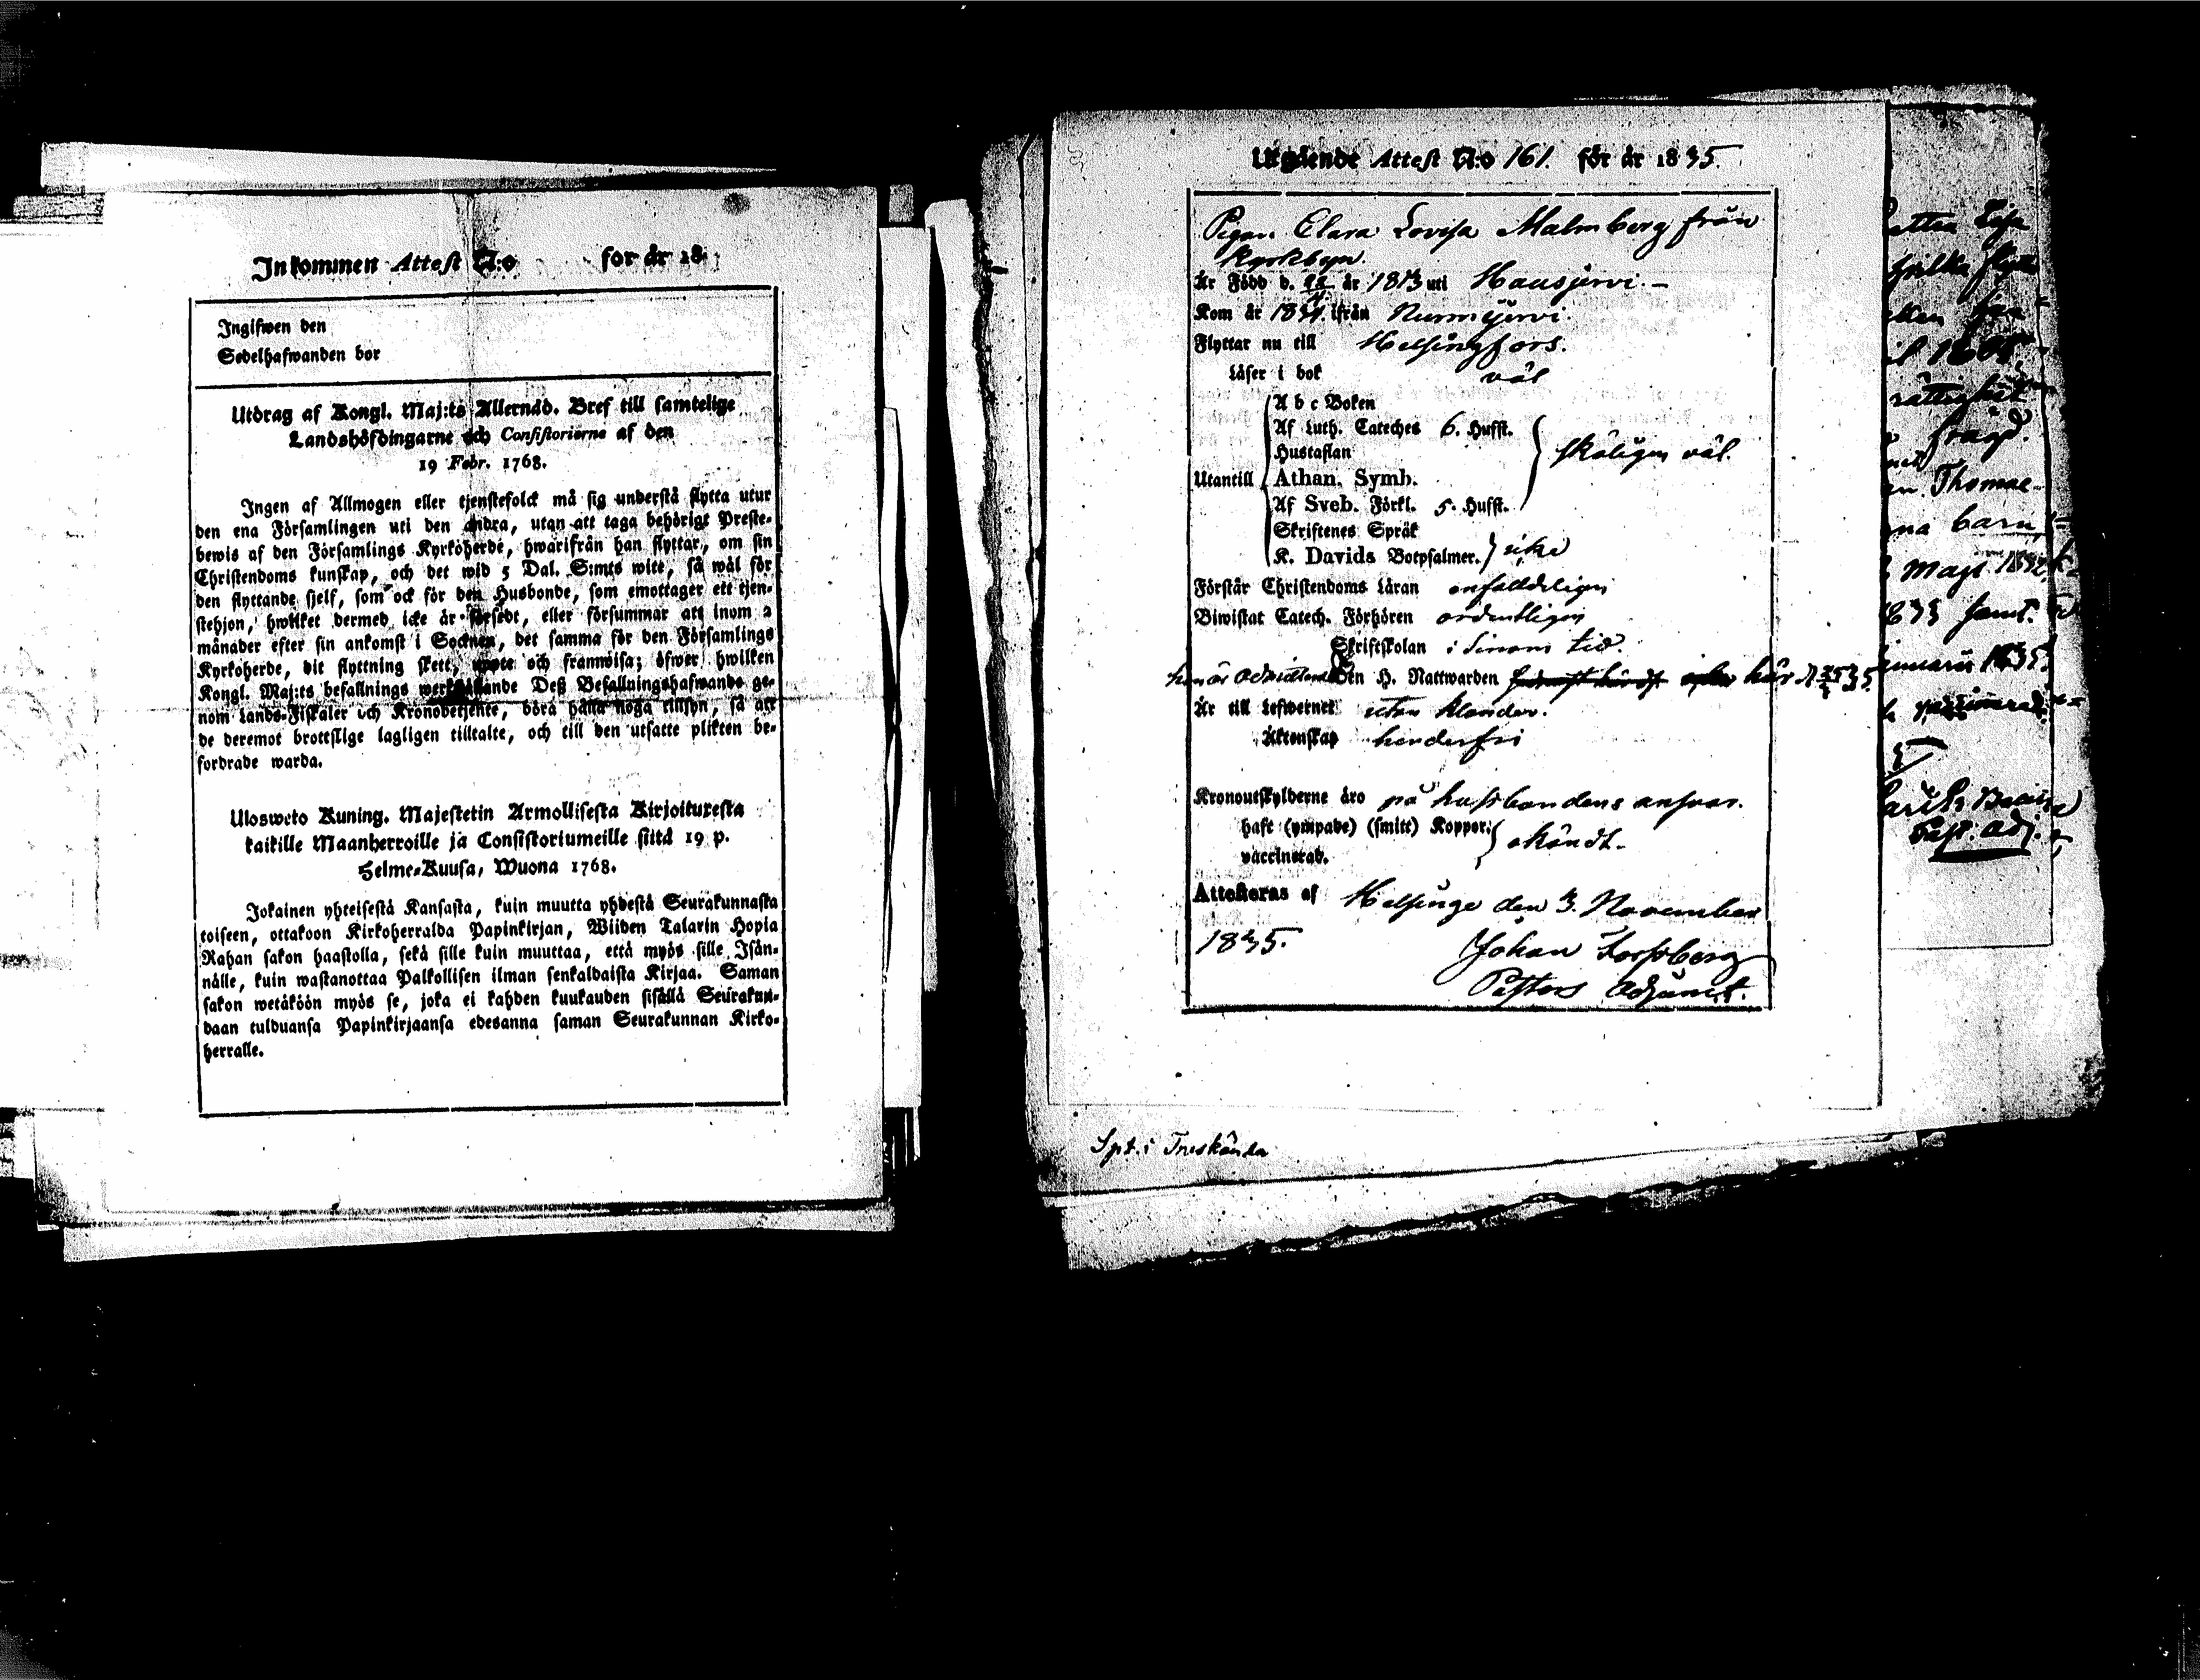 Inkommen Attest N:o for år 18
Ingifwen den
Sedelhafwanden bor
Utdrag af Kongl. Maj:ts Allernåd. Bref till samtelige
Landshöfdingarne och Consistorierne af den
19 Febr. 1768.
Ingen af Allmogen eller tjenstefolck må sig understå flytta utur
den ena Församlingen uti den andra, utan att taga behörigt Preste-
bewis af den Församlings Kyrkoherde, hwarifrån han flyttar, om sin
Christendoms kunskap, och det wid 5 Dal. S:mts wite, så wäl för
den flyttande sjelf, som ock för den Husbonde, som emottager ett tjen-
stehjon, hwilket dermed icke är försedt, eller försummar att inom 2
månader efter sin ankomst i Socknen, det samma för den Församlings
Kyrkoherde, dit flyttning skett, upte och framwisa; öfwer hwilken
Kongl. Maj:ts befallnings werkställande Deß Befallningshafwande ge-
nom Lands-Fiskaler och Kronobetjente, böra hålla noga tillsyn, så att
de deremot brottslige lagligen tilltalte, och till den utsatte plikten be-
fordrade warda.
Ulosweto Kuning. Majestetin Armollisesta Kirjoituresta
kaikille Maanherroille ja Consistoriumeille siitä 19 p.
Helme-Kuusa, Wuona 1768.
Jokainen yhteisestä Kansasta, kuin muutta yhdestä Seurakunnasta
toiseen, ottakoon Kirkoherralda Papinkirjan, Wiiden Talarin Hopia
Rahan sakon haastolla, sekä sille kuin muuttaa, että myös sille Isän-
nälle, kuin wastanottaa Palkollisen ilman senkaldaista Kirjaa. Saman
sakon wetäköön myös se, joka ei kahden kuukauden sisällä Seurakun-
daan tulduansa Papinkirjaansa edesanna saman Seurakunnan Kirko-
herralle.
Utgående Attest N:o 161. för år 1835.
Pigan Clara Lovisa Malmberg från
Kyrkbyn.
Är Född d. år 1813 uti Hausjervi. –
Kom år 1834 ifrån Nurmijervi.
Flyttar nu till Helsingfors.
Läser i bok väl
Utantill
A b c Boken
Af Luth. Cateches 6. Hufst.
Hustaflan
Athan. Symb.
Af Sveb. Förkl. 5. Hufst.
skäligen väl.
Skriftenes Språk
K. Davids Botpsalmer.
icke
Förstår Christendoms Läran enfaldeligen
Biwistat Catech. Förhören ordentligen
Skriftskolan i sinom tid.
Den H. Nattwarden här d. 35.
Är till Lefwernet utan klander.
Äktenskap hinderfri
Kronoutskylderne äro på husbondens ansvar.
haft (ympade) (smitt) Koppor.
vaccinerad.
okändt.
Attesteras af Helsinge den 3. November
1835.
Johan Forssberg
Pastors Adjunct.
Spt. i Träskända
Thomae
barn
Maji 1832
Past. Adj.